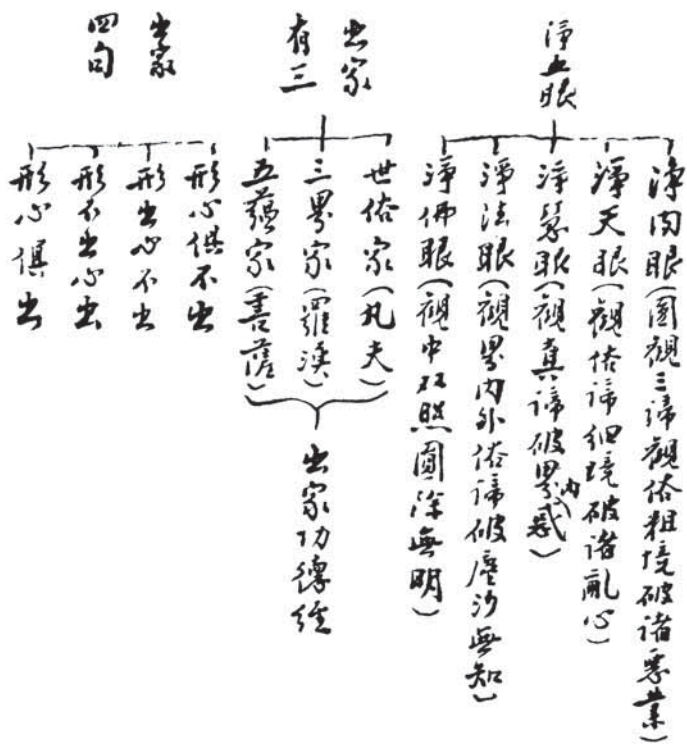 淨五眼
淨肉眼(圓觀三諦觀俗粗境破諸惡業)
淨天眼(觀俗諦細境破諸亂心)
淨慧眼(觀真諦破界內惑)
淨法眼(觀界內外俗諦破塵沙無知)
淨佛眼(觀中双照圓除無明)
出家
有三
世俗家(凡夫)
三界家(羅漢)
五蘊家(菩薩)
出家功德經
出家
四句
形心俱不出
形出心不出
形不出心出
形心俱出